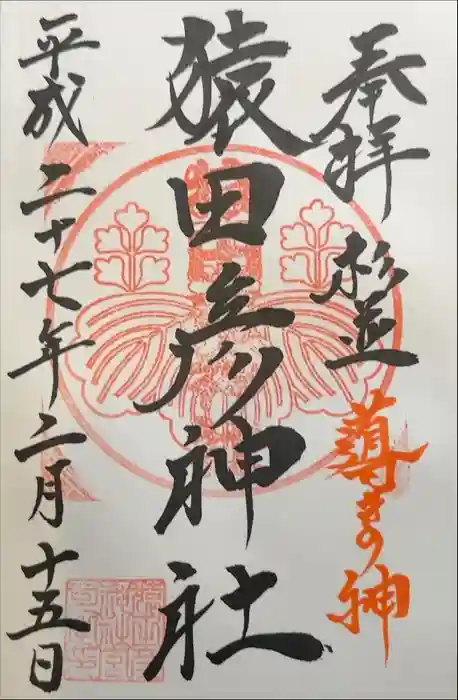 奉拝 杉並
導きの神
猿田彦神社
平成二十七年二月十五日